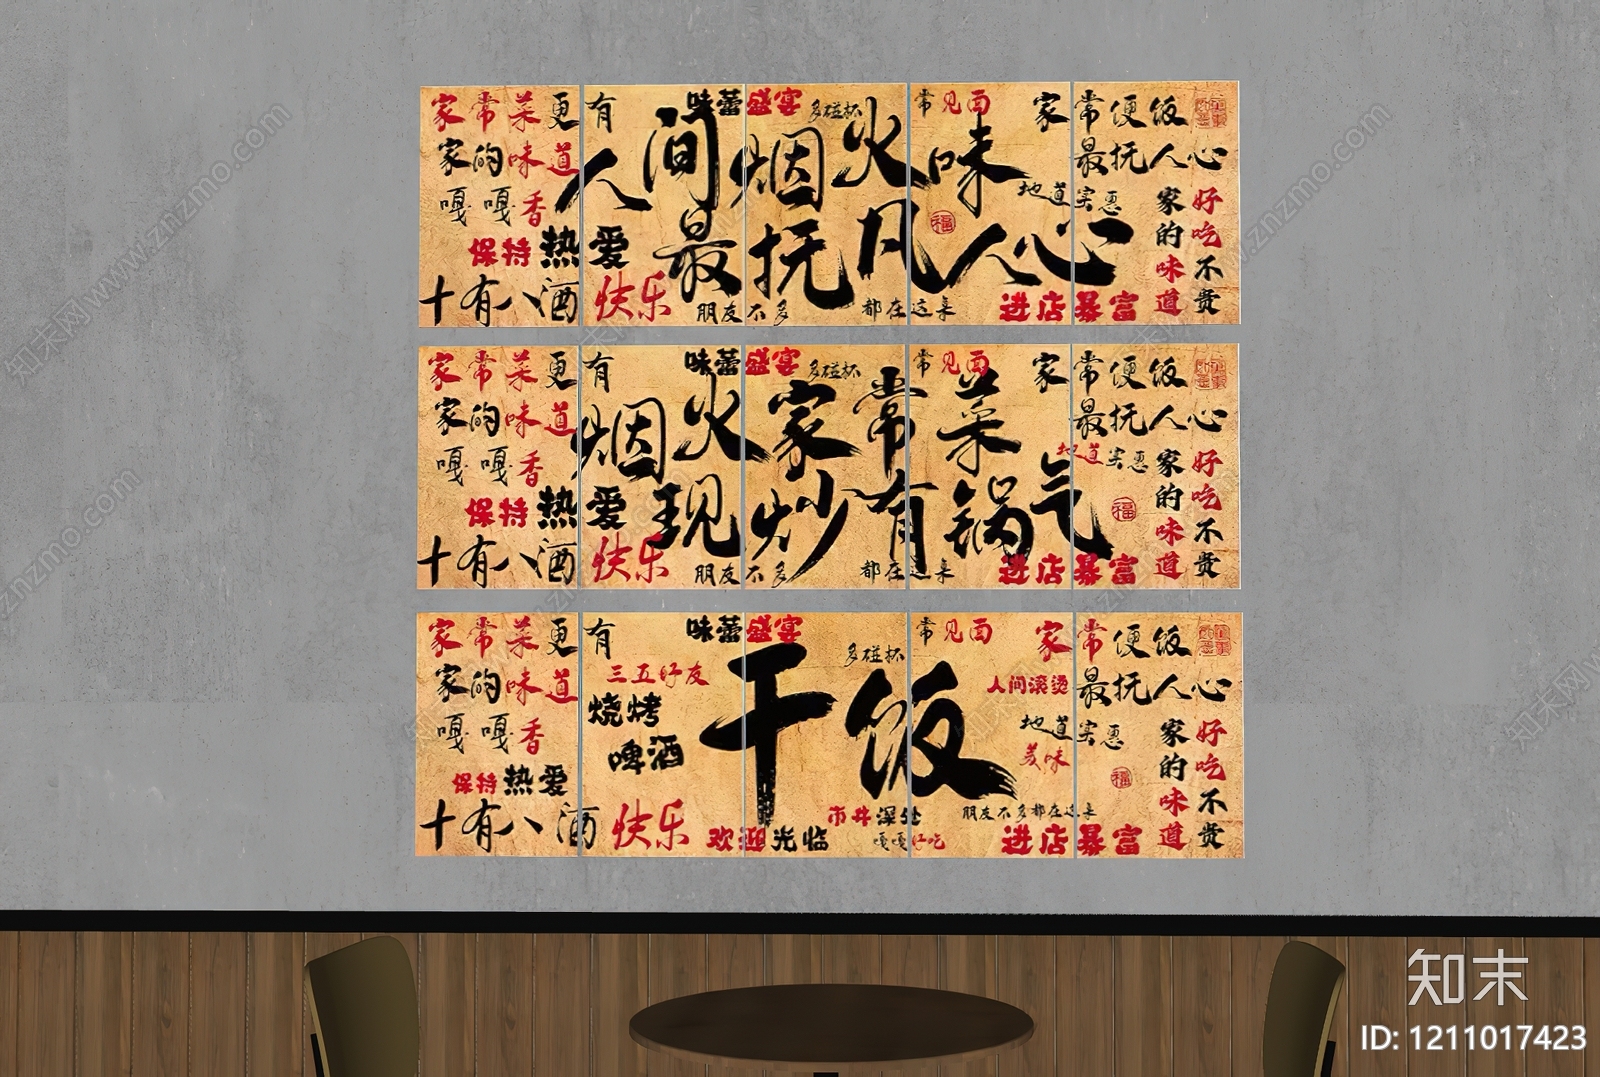 家常菜更有味蕾盛宴 多碰杯 常见面 家常便饭
家的味道 最抚人心
人间烟火味
嘎嘎香 地道实惠 福
最抚凡人心
保持热爱
十有八酒 快乐 朋友不多都在这桌 进店暴富
家的味道
好吃不贵
家常菜更有味蕾盛宴 多碰杯 常见面 家常便饭
家的味道 最抚人心
烟火家常菜
嘎嘎香 地道实惠 福
现炒有锅气
保持热爱
十有八酒 快乐 朋友不多都在这桌 进店暴富
家的味道
好吃不贵
家常菜更有味蕾盛宴 多碰杯 常见面 家常便饭
家的味道 三五好友 人间滚烫 最抚人心
烧烤
啤酒
干饭
嘎嘎香 地道实惠
美味 福
保持热爱
十有八酒 快乐 欢迎光临 市井深处 朋友不多都在这桌
嘎嘎好吃 进店暴富
家的味道
好吃不贵
知末
ID: 1211017423
知末网www.znzmo.com